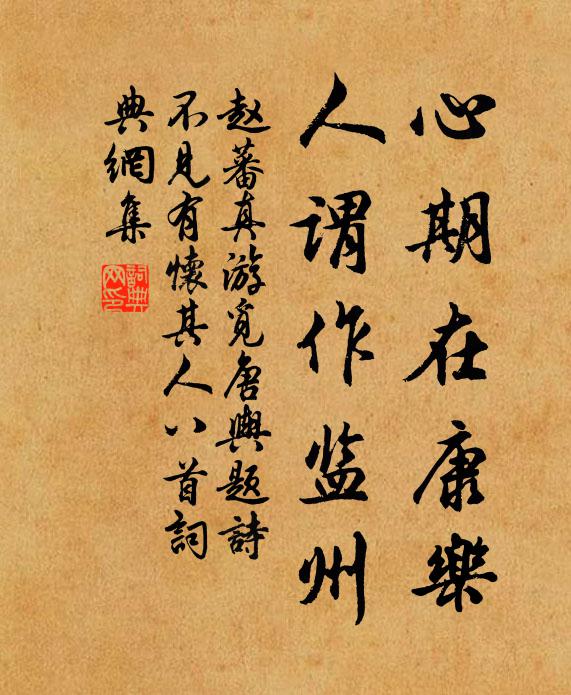 心期在康樂
人谓作监州
赵蕃真游覓唐興題詩
不見有懷其人八首詞
典網集
詞典网印